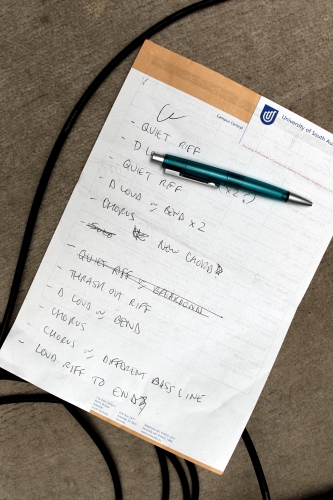 University of South Au
Campus Central
- QUIET RIFF
- D LO
- QUIET RIFF x 2
- D LOUD w/ BEND x 2
- CHORUS
- SOLO NEW CHORD
- QUIET RIFF & BREAKDOWN
- THRASH OUT RIFF
- D LOUD w/ BEND
- CHORUS
- CHORUS w/ DIFFERENT BASS LINE
- LOUD RIFF TO END